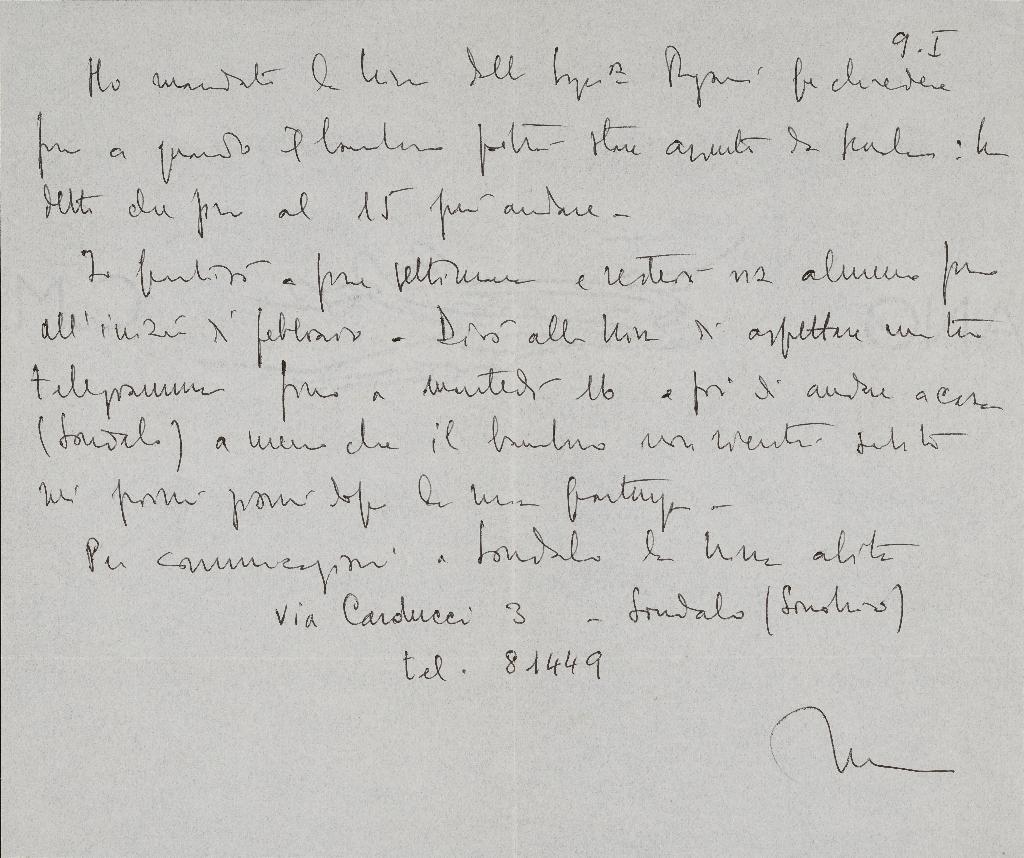 9.I
Ho mandato la Lina dalla Sig.ra a chiedere
fino a quando il bambino potrà stare assente da scuola : ha
detto che fino al 15 può andare -
Io partirò a fine settimana e resterò via almeno fino
all'inizio di febbraio - Dirò alla Lina di aspettare un tuo
telegramma fino a martedì 16 e poi di andare a casa
(Sondalo) a meno che il bambino non rientri subito
nei primi giorni dopo la mia partenza -
Per comunicazioni a Sondalo la Lina abita
via Carducci 3 - Sondalo (Sondrio)
tel. 81449